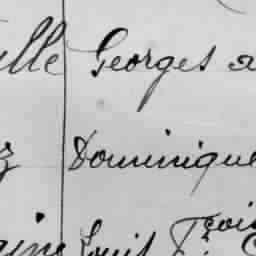 ille Georges a
z Dominique
Trois
aine Louis F. C